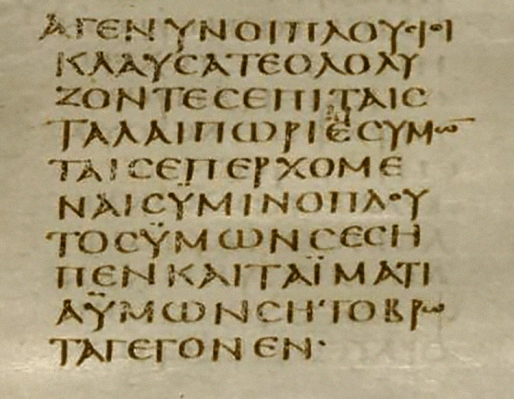 ΑΓΕΝΥΝΟΙΠΛΟΥϹΙΟΙ
ΚΛΑΥϹΑΤΕΟΛΟΛΥ
ΖΟΝΤΕϹΕΠΙΤΑΙϹ
ΤΑΛΑΙΠΩΡΙΕϹΥΜΩ̅
ΤΑΙϹΕΠΕΡΧΟΜΕ
ΝΑΙϹΫΜΙΝΟΠΛΟΥ
ΤΟϹΫΜΩΝϹΕϹΗ
ΠΕΝΚΑΙΤΑΪΜΑΤΙ
ΑΫΜΩΝϹΗΤΟΒΡΩ
ΤΑΓΕΓΟΝΕΝ·